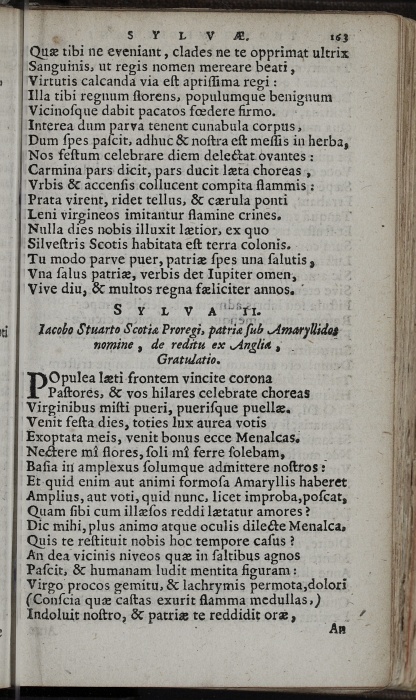 SYLVÆ. 163
Quæ tibi ne eveniant, clades ne te opprimat ultrix
Sanguinis, ut regis nomen mereare beati,
Virtutis calcanda via est aptissima regi:
Illa tibi regnum florens, populumque benignum
Vicinosque dabit pacatos fœdere firmo.
Interea dum parva tenent cunabula corpus,
Dum spes pascit, adhuc & nostra est messis in herba,
Nos festum celebrare diem delectat ovantes:
Carmina pars dicit, pars ducit læta choreas,
Vrbis & accensis collucent compita flammis:
Prata virent, ridet tellus, & cærula ponti
Leni virgineos imitantur flamine crines.
Nulla dies nobis illuxit lætior, ex quo
Silvestris Scotis habitata est terra colonis.
Tu modo parve puer, patriæ spes una salutis,
Vna salus patriæ, verbis det Iupiter omen,
Vive diu, & multos regna fæliciter annos.
SYLVA II.
Iacobo Stuarto Scotiæ Proregi, patriæ sub Amaryllidos
nomine, de reditu ex Anglia,
Gratulatio.
POpulea læti frontem vincite corona
Pastores, & vos hilares celebrate choreas
Virginibus misti pueri, puerisque puellæ.
Venit festa dies, toties lux aurea votis
Exoptata meis, venit bonus ecce Menalcas.
Nectere mî flores, soli mî ferre solebam,
Basia in amplexus solumque admittere nostros:
Et quid enim aut animi formosa Amaryllis haberet
Amplius, aut voti, quid nunc, licet improba, poscat,
Quam sibi cum illæsos reddi lætatur amores?
Dic mihi, plus animo atque oculis dilecte Menalca,
Quis te restituit nobis hoc tempore casus?
An dea vicinis niveos quæ in saltibus agnos
Pascit, & humanam ludit mentita figuram:
Virgo procos gemitu, & lachrymis permota, dolori
(Conscia quæ castas exurit flamma medullas,)
Indoluit nostro, & patriæ te reddidit oræ,
An